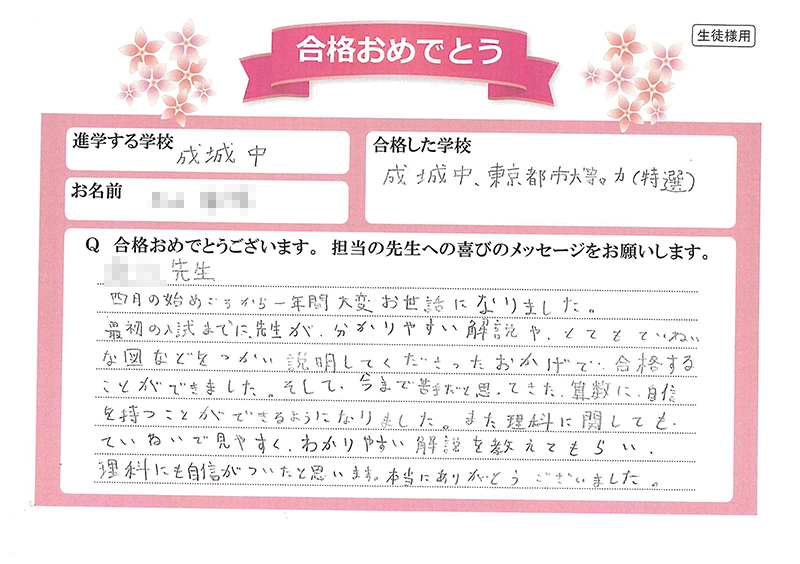 合格おめでとう
生徒様用
進学する学校
成城中
合格した学校
成城中、東京都市大等々力(特選)
お名前
Q 合格おめでとうございます。担当の先生への喜びのメッセージをお願いします。
先生
四月の始めごろから一年間大変お世話になりました。
最初の入試までに、先生が、分かりやすい解説や、とてもていねい
な図などをつかい説明してくださったおかげで、合格する
ことができました。そして、今まで苦手だと思ってきた、算数に、自信
を持つことができるようになりました。また理科に関しても、
ていねいで見やすく、わかりやすい解説を教えてもらい、
理科にも自信がついたと思います。本当にありがとうございました。